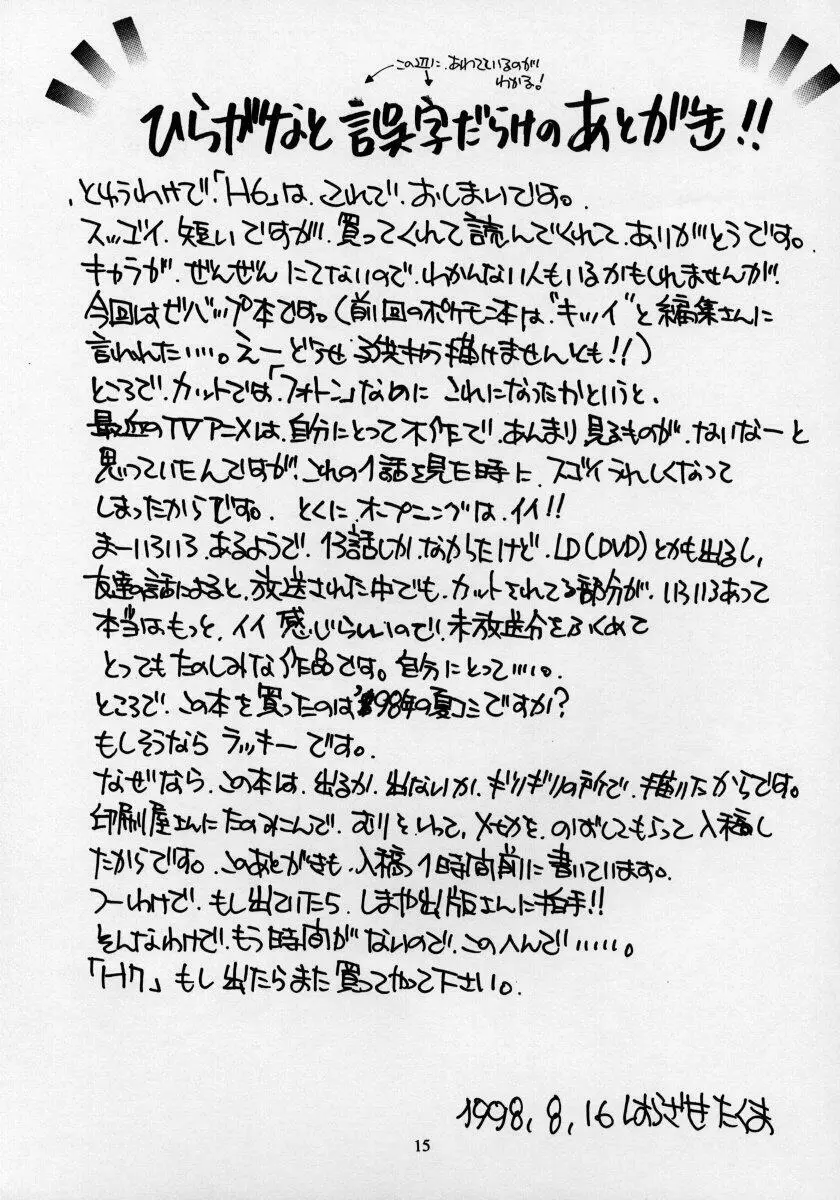 この辺に、あわてているのが
わかる!
ひらがなと誤字だらけのあとがき!!
、とゆうわけで、「H6」は、これで、おしまいです。
スッゴイ、短いですが、買ってくれて読んでくれて、ありがとうです。
キャラが、ぜんぜん にてないので、わかんない人もいるかもしれませんが、
今回はゼパップ本です。(前回のポケモン本は、"キッツイ"と編集さんに
言われた….。えーどうせ 子供きり描けませんとも!!)
ところで、カットでは、「フォトン」なのに これになったかというと、
最近のTVアニメは、自分にとって不作で、あんまり見るものが、ないなーと
思っていたんですが、これの1話を見た時に、スゴイうれしくなって
しまったからです。、とくに オープニングは、イイ!!
まーいろいろ、あるようで、13話しか、なかったけど、LD(DVD)とかも出るし、
友達の話によると、放送された中でも、カットされてる部分が、いろいろあって
本当は、もっと、イイ 感じらしいので、未放送分をふくめて
とってもたのしみな作品です。自分にとって…..。
ところで、この本を買ったのは'98年の夏コミですか?
もしそうなら ラッキーです。
なぜなら、この本は、出るか、出ないか、ギリギリの所で、描いたからです。
印刷屋さんにたのみこんで、むりをいって、〆切を、のばしてもらって入稿し
たからです。このあとがきも、入稿、1時間前に書いています。
つーわけで、もし出ていたら、しまや出版さんに拍手!!
そんなわけで、もう時間がないので、このへんで……。
「H7」もし出たらまた買ってやって下さい。
1998, 8, 16 はらざきたくま
15